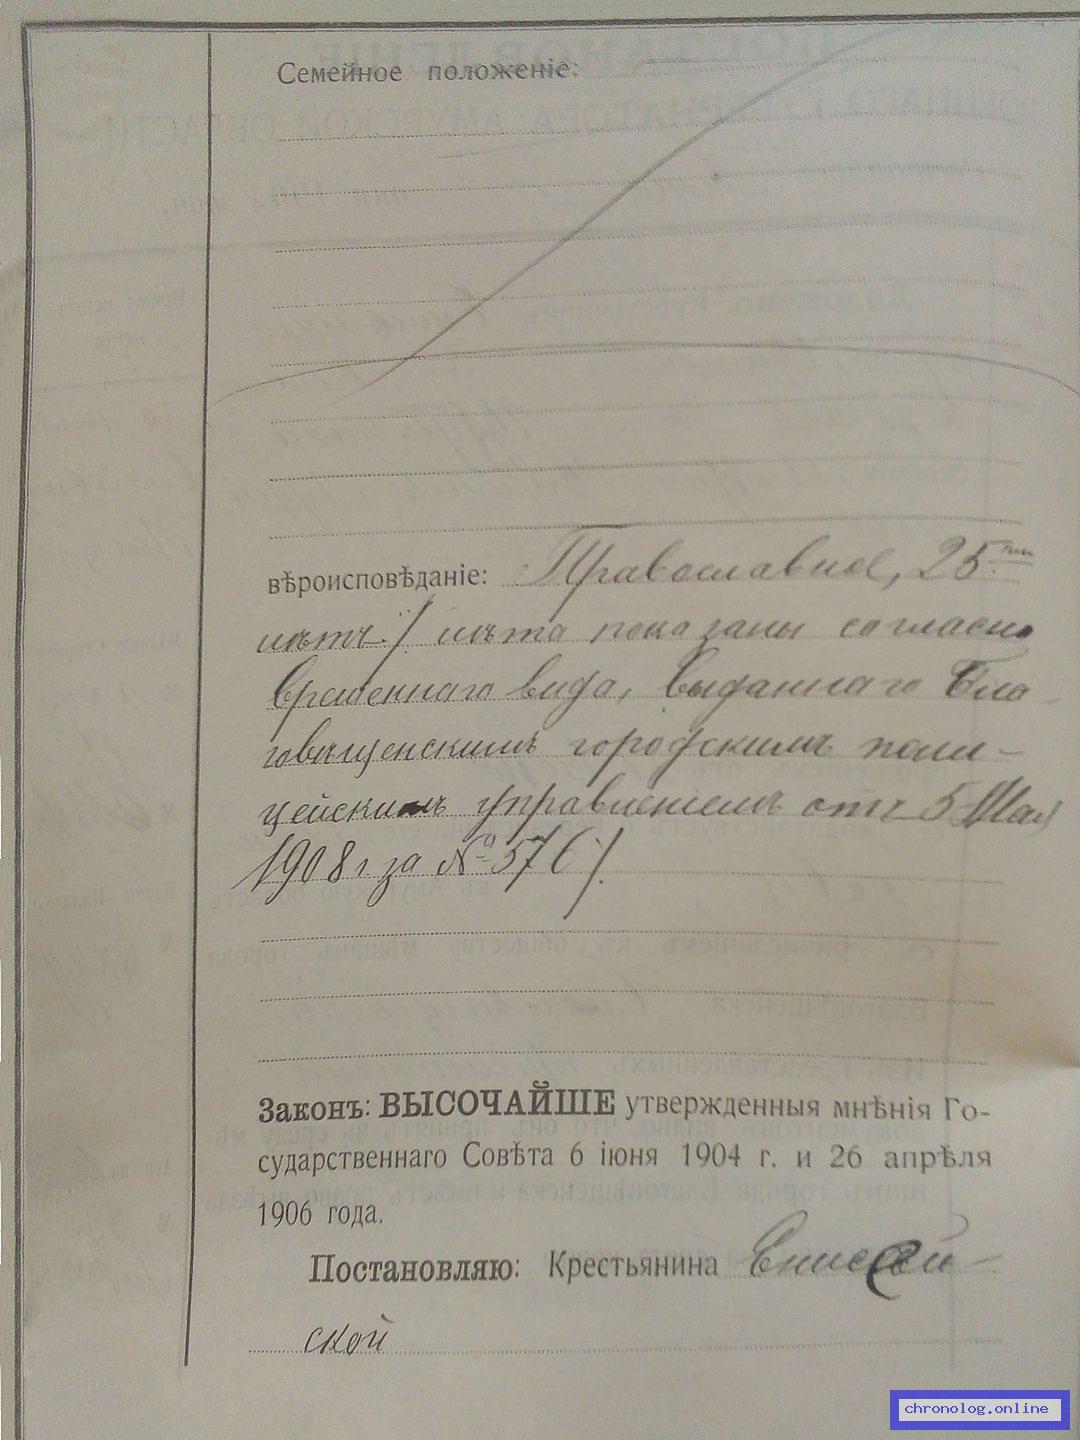 Семейное положеніе:
вѣроисповѣданіе: Православное, 25-ти
лѣтъ./ лѣта показаны согласно
временнаго вида, выданнаго Бла
говѣщенскимъ городскимъ поли-
цейскимъ управленіемъ отъ 5 Мая
1908 г за № 576/.
Законъ: ВЫСОЧАЙШЕ утвержденныя мнѣнія Го-
сударственнаго Совѣта 6 іюня 1904 г. и 26 апрѣля
1906 года.
Постановляю: Крестьянина Енисей-
ской
chronolog.online